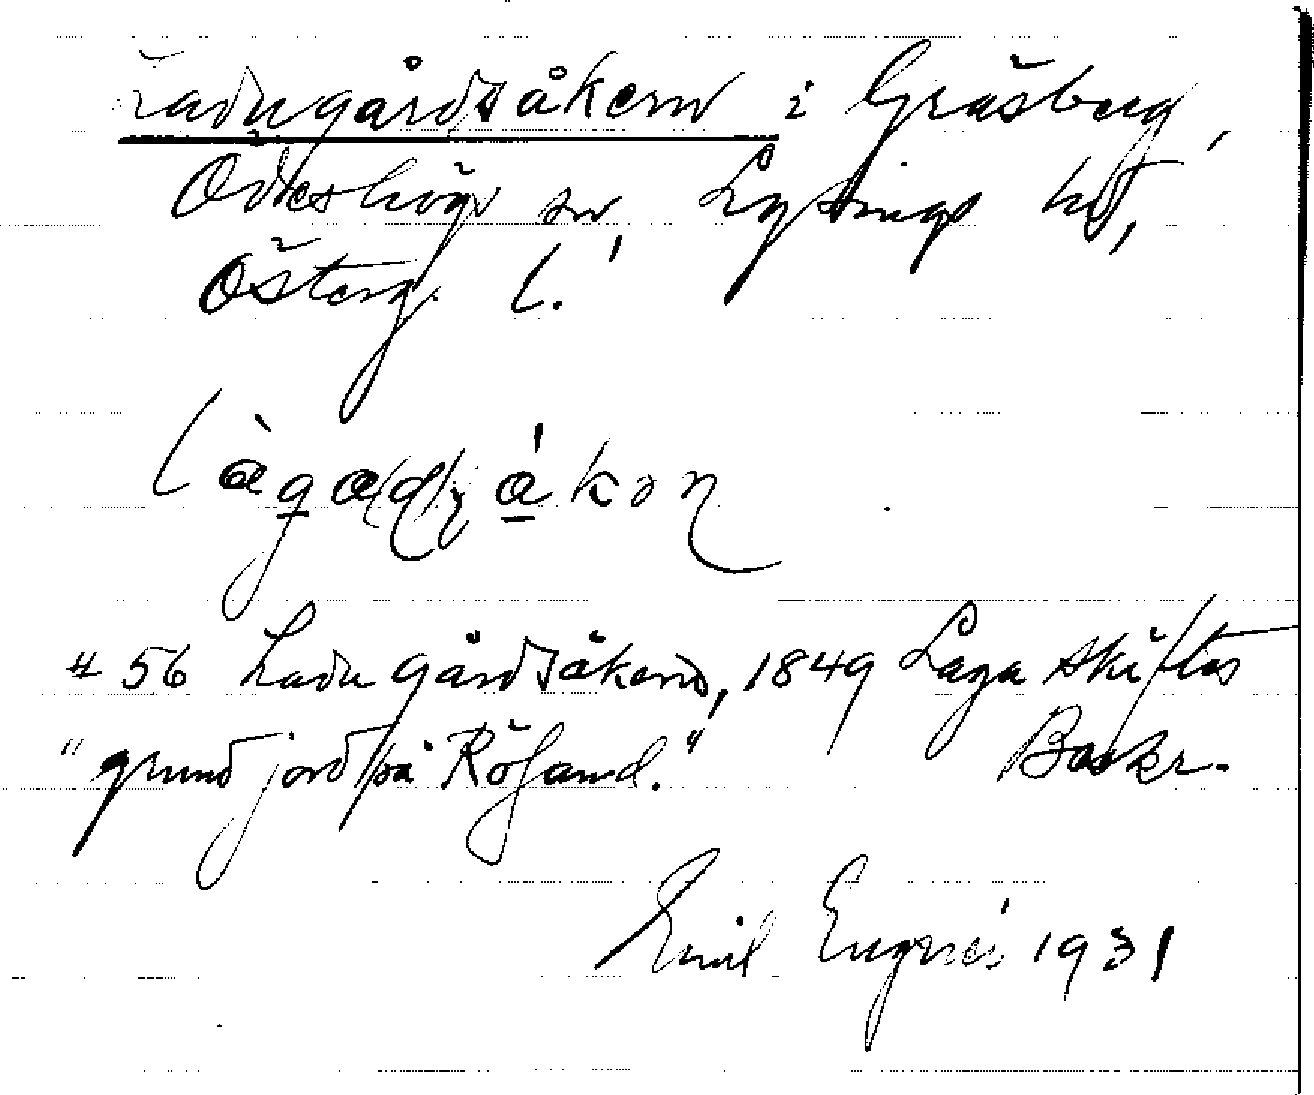 Ladugårdsåkern i Gräsberg,
Ödeshögs sn, Lysings hd,
Österg. l.
# 56 Ladugårdsåkern, 1849 Laga skiftes
"grund jord på Rösand." Beskr.
Emil Engnés 1931